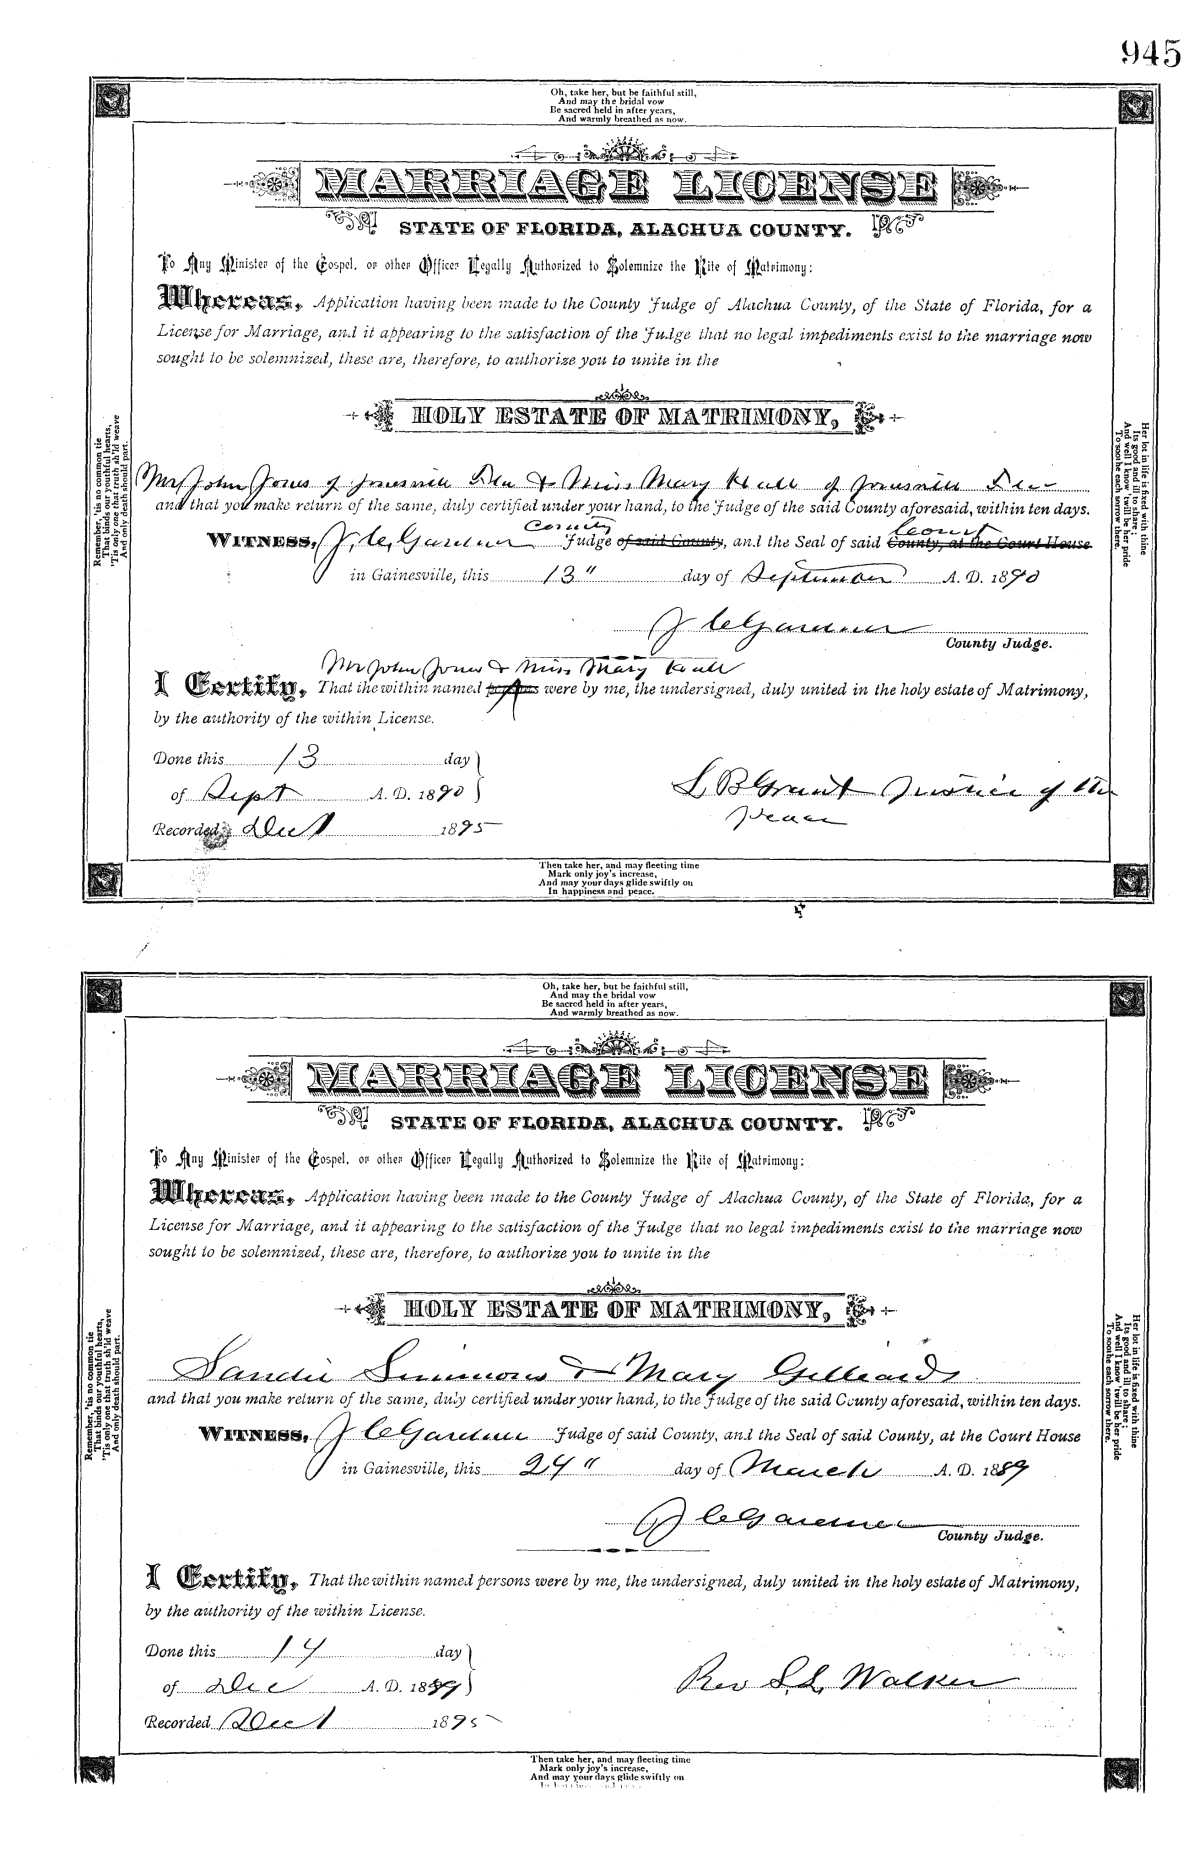 945
Oh, take her, but be faithful still,
And may the bridal vow
Be sacred held in after years,
And warmly breathed as now.
MARRIAGE LICENSE
STATE OF FLORIDA, ALACHUA COUNTY.
To Any Minister of the Gospel, or other Officer Legally Authorized to Solemnize the Rite of Matrimony:
Whereas, Application having been made to the County Judge of Alachua County, of the State of Florida, for a
License for Marriage, and it appearing to the satisfaction of the Judge that no legal impediments exist to the marriage now
sought to be solemnized, these are, therefore, to authorize you to unite in the
HOLY ESTATE OF MATRIMONY,
Mr John Jones of Jonesville Fla & Miss Mary of Jonesville Fla
and that you make return of the same, duly certified under your hand, to the Judge of the said County aforesaid, within ten days.
County Court
WITNESS, J. C. Gardner Judge of said County, and the Seal of said County, at the Court House
in Gainesville, this 13" day of September A. D. 1890
J C Gardner
County Judge.
Mr John Jones & Miss Mary
I Certify, That the within named persons were by me, the undersigned, duly united in the holy estate of Matrimony,
by the authority of the within License.
Done this 13 day
of Sept A. D. 1890
L B Grant Justice of the
peace
Recorded Dec 1 1895
Then take her, and may fleeting time
Mark only joy's increase,
And may your days glide swiftly on
In happiness and peace.
Remember, 'tis no common tie
That binds our youthful hearts,
'Tis only one that truth sh'ld weave
And only death should part.
Her lot in life is fixed with thine
Its good and ill to share;
And well I know 'twill be her pride
To soothe each sorrow there.
Oh, take her, but be faithful still,
And may the bridal vow
Be sacred held in after years,
And warmly breathed as now.
MARRIAGE LICENSE
STATE OF FLORIDA, ALACHUA COUNTY.
To Any Minister of the Gospel, or other Officer Legally Authorized to Solemnize the Rite of Matrimony:
Whereas, Application having been made to the County Judge of Alachua County, of the State of Florida, for a
License for Marriage, and it appearing to the satisfaction of the Judge that no legal impediments exist to the marriage now
sought to be solemnized, these are, therefore, to authorize you to unite in the
HOLY ESTATE OF MATRIMONY,
Sandie Simmons & Mary Gilliards
and that you make return of the same, duly certified under your hand, to the Judge of the said County aforesaid, within ten days.
WITNESS, J C Gardner Judge of said County, and the Seal of said County, at the Court House
in Gainesville, this 24" day of March A. D. 1889
J C Gardner
County Judge.
I Certify, That the within named persons were by me, the undersigned, duly united in the holy estate of Matrimony,
by the authority of the within License.
Done this 14 day
of Dec A. D. 1889
Rev S. L. Walker
Recorded Dec 1 1895
Then take her, and may fleeting time
Mark only joy's increase,
And may your days glide swiftly on
Remember, 'tis no common tie
That binds our youthful hearts,
'Tis only one that truth sh'ld weave
And only death should part.
Her lot in life is fixed with thine
Its good and ill to share;
And well I know 'twill be her pride
To soothe each sorrow there.